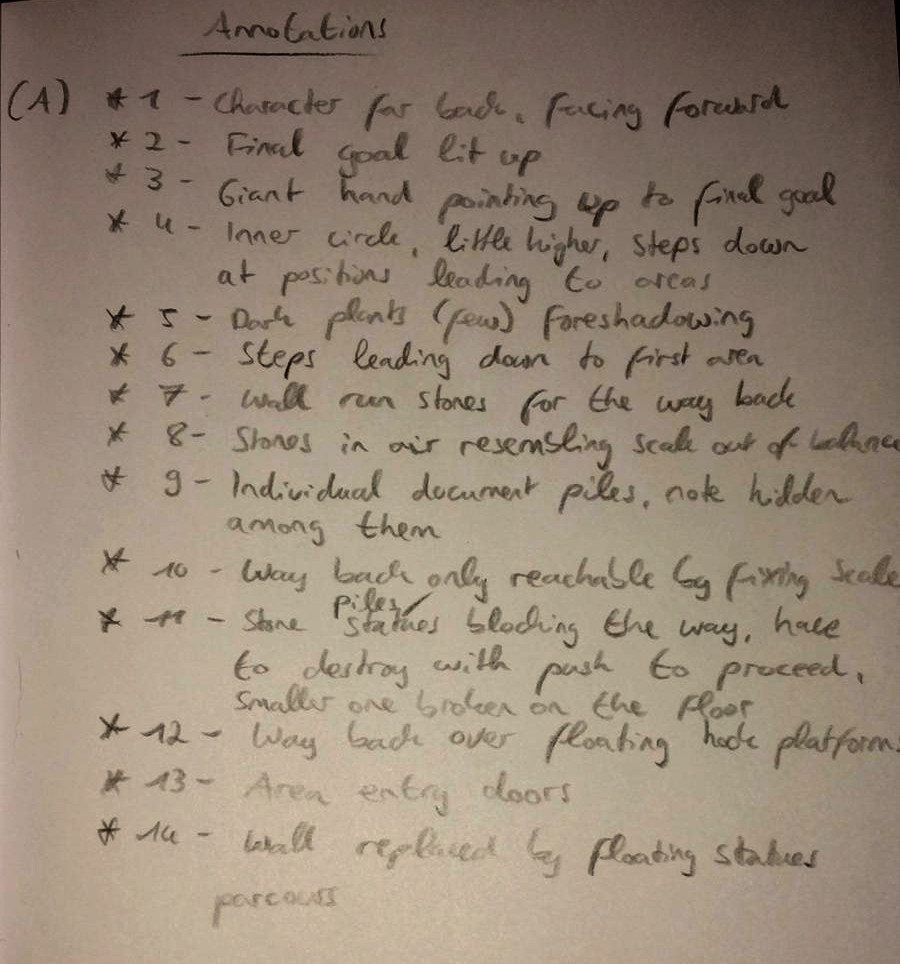 Annotations
(A) * 1 - Character far back, facing forward
* 2 - Final goal lit up
* 3 - Giant hand pointing up to final goal
* 4 - Inner circle, little higher, steps down
at positions leading to areas
* 5 - Dark plants (few) foreshadowing
* 6 - Steps leading down to first area
* 7 - Wall run stones for the way back
* 8 - Stones in air resembling scale out of balance
* 9 - Individual document piles, note hidden
among them
* 10 - Way back only reachable by fixing scale
piles
* 11 - Stone statues blocking the way, have
to destroy with push to proceed,
smaller one broken on the floor
* 12 - Way back over floating platforms
* 13 - Area entry doors
* 14 - Wall replaced by floating statues
parcours